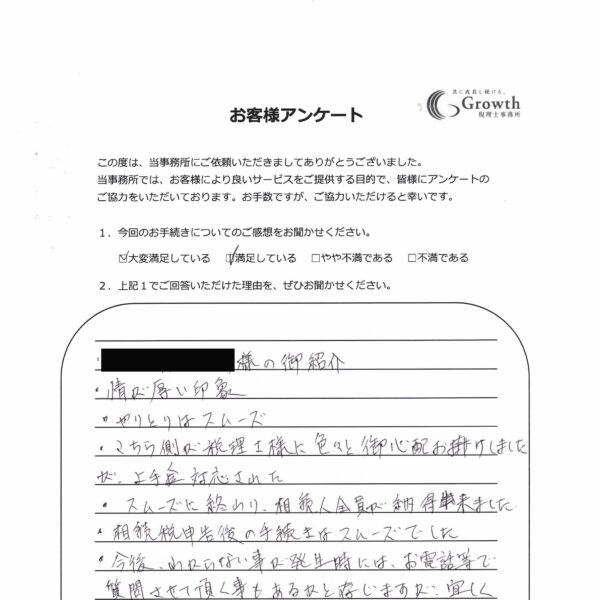 共に成長し続ける。
Growth
税理士事務所
お客様アンケート
この度は、当事務所にご依頼いただきましてありがとうございました。
当事務所では、お客様により良いサービスをご提供する目的で、皆様にアンケートの
ご協力をいただいております。お手数ですが、ご協力いただけると幸いです。
1．今回のお手続きについてのご感想をお聞かせください。
☑大変満足している ☑満足している □やや不満である □不満である
2．上記1でご回答いただけた理由を、ぜひお聞かせください。
・様の御紹介
・情が厚い印象
・やりとりはスムーズ
・こちら側が税理士様に色々と御心配お掛けしました
が、上手 対応された
・スムーズに終わり、相続人全員が納得出来ました
・相続税申告後の手続きはスムーズでした
・今後、わからない事が発生時には、お電話等で
質問させて頂く事もあるかと存じますが、宜しく